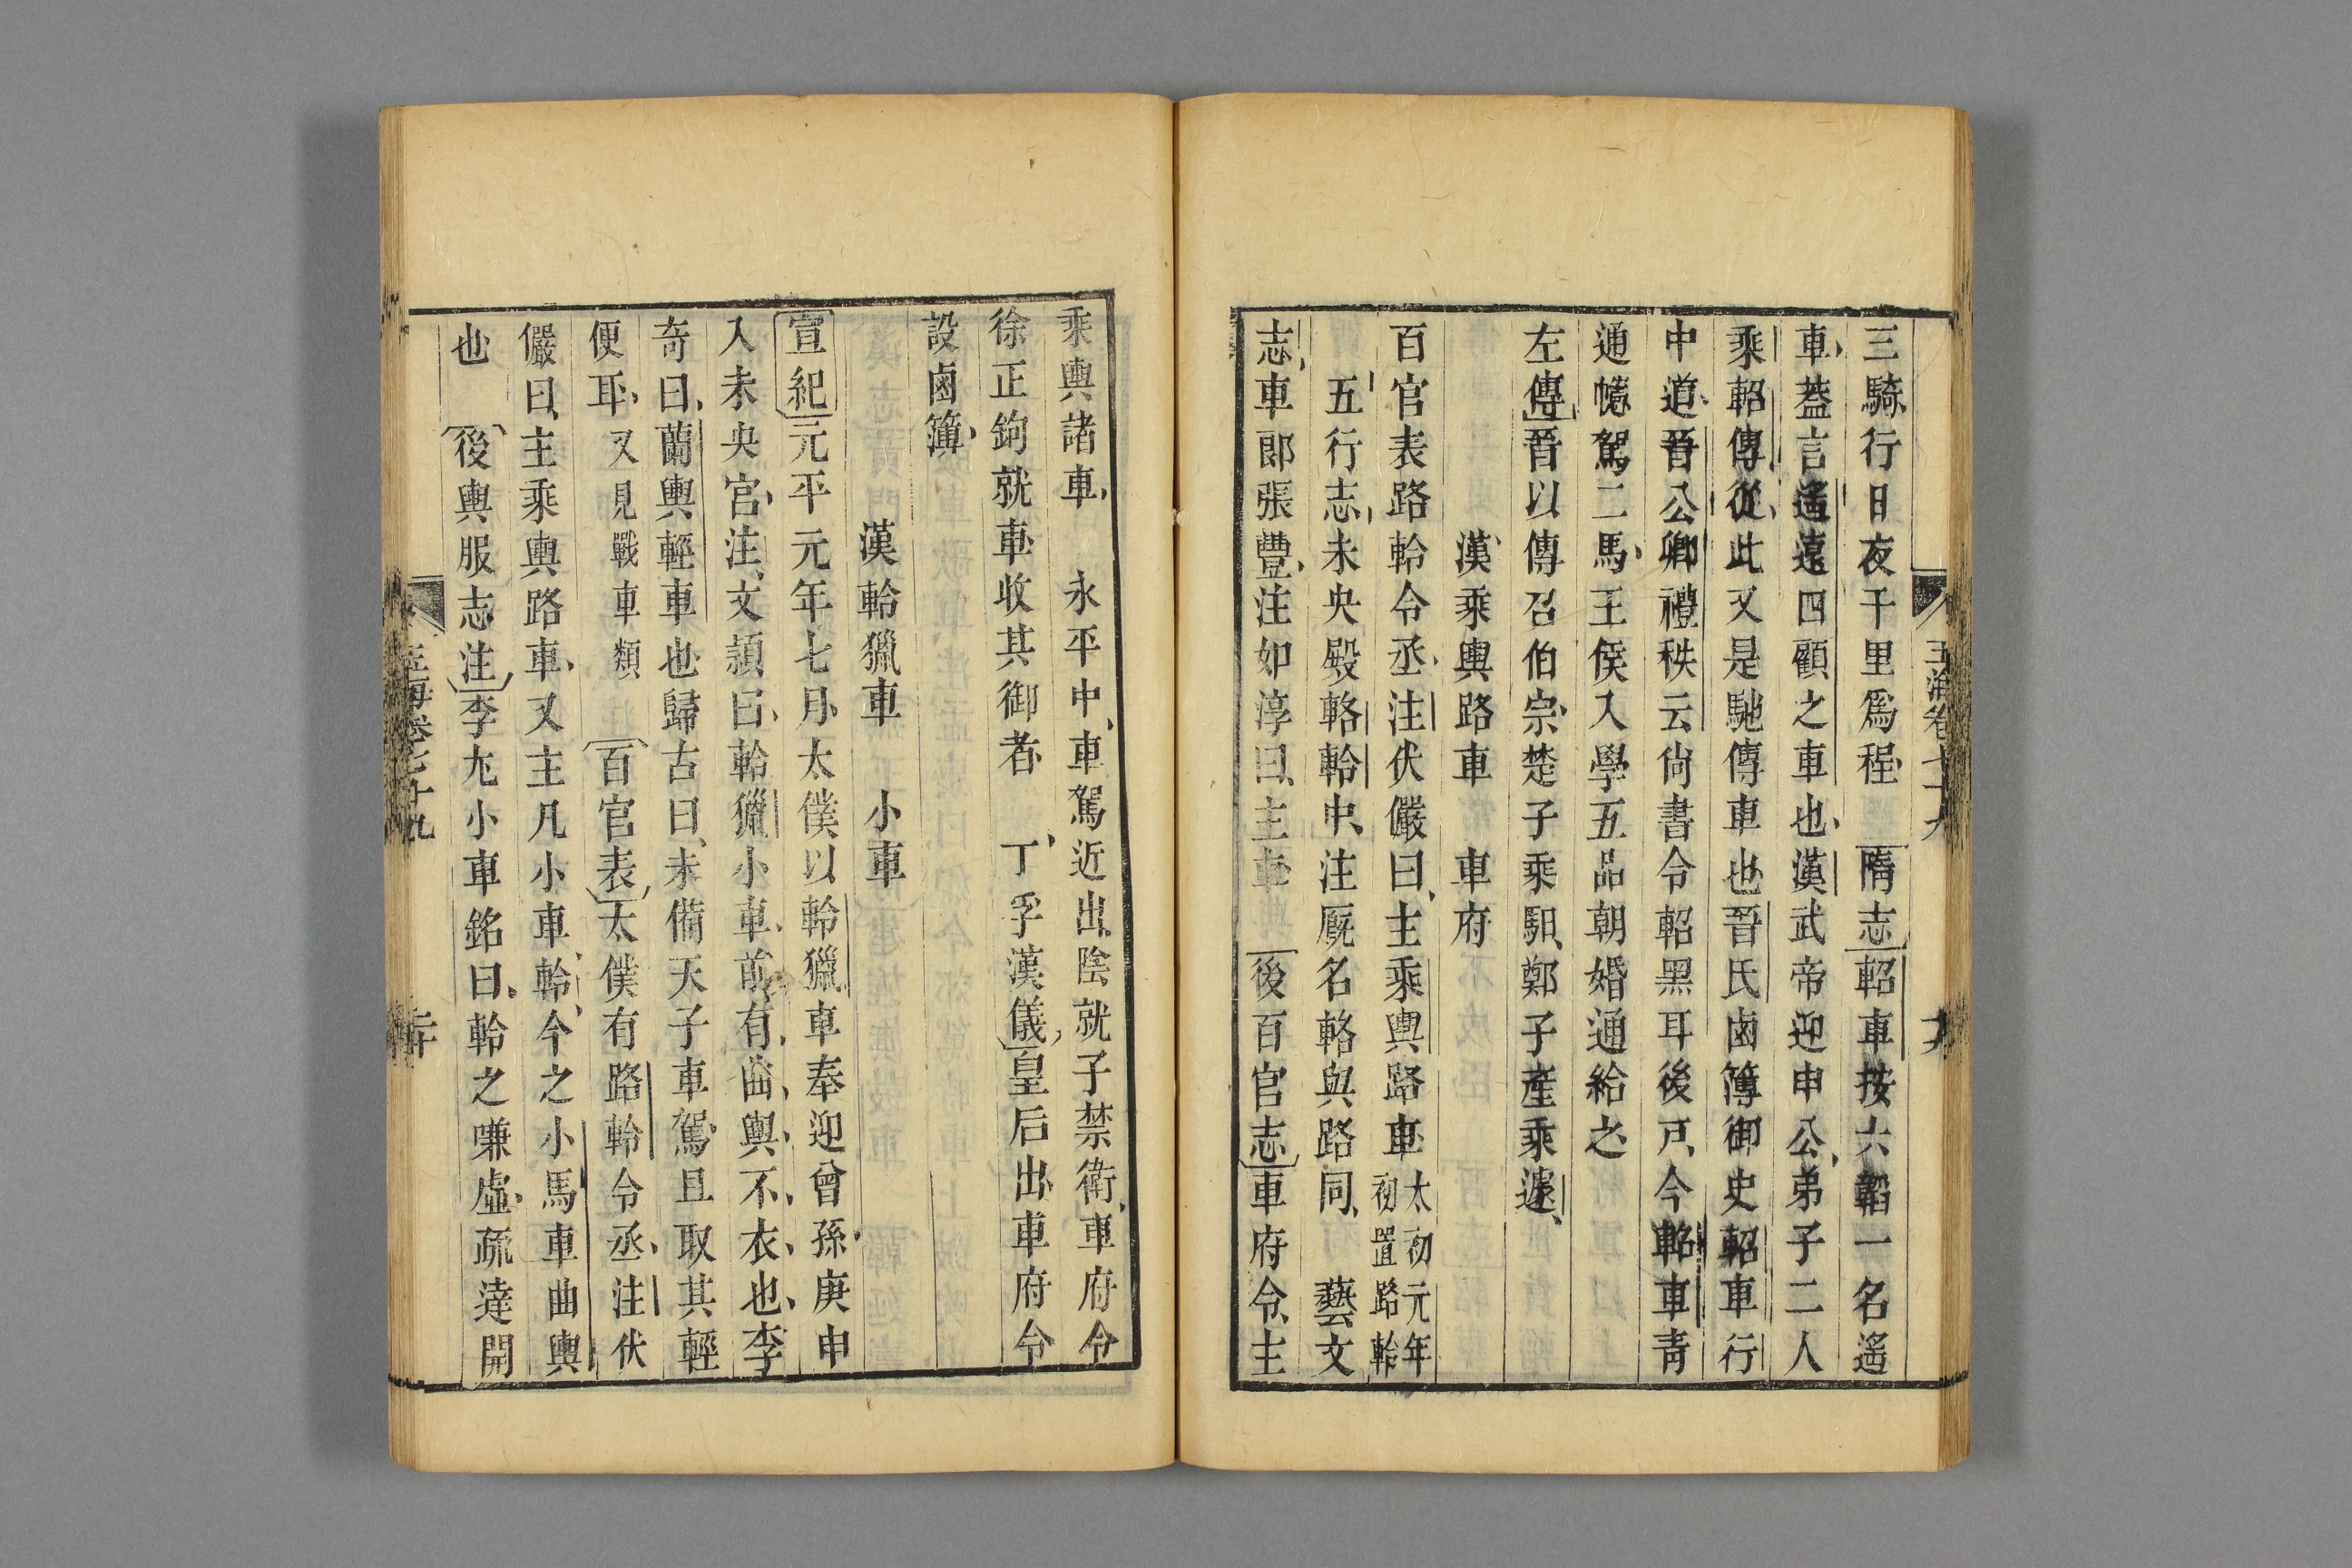 三騎行日夜千里爲程 隋志軺車按六韜一名遙
車蓋言遙遠四顧之車也漢武帝迎申公弟子二人
乘軺傳從此又是馳傳車也晉氏鹵簿御史軺車行
中道晉公卿禮秩云尚書令軺黑耳後戶今軺車青
通幰駕二馬王侯入學五品朝婚通給之
左傳晉以傳召伯宗楚子乘馹鄭子產乘遽
漢乘輿路車 車府
百官表路軨令丞注伏儼曰主乘輿路車太初元年初置路軨
五行志未央殿輅軨中注厩名輅與路同 藝文
志車郎張豐注如淳曰主車 後百官志車府令主
乘輿諸車 永平中車駕近出陰就子禁衛車府令
徐正鉤就車收其御者 丁孚漢儀皇后出車府令
設鹵簿
漢軨獵車 小車
宣紀元平元年七月太僕以軨獵車奉迎曾孫庚申
入未央宮注文頴曰軨獵小車前有曲輿不衣也李
奇曰蘭輿輕車也歸古曰未備天子車駕且取其輕
便耳又見戰車類 百官表太僕有路軨令丞注伏
儼曰主乘輿路車又主凡小車軨今之小馬車曲輿
也 後輿服志注李尤小車銘曰軨之嗛虛疏達開
玉海卷七十九 二十